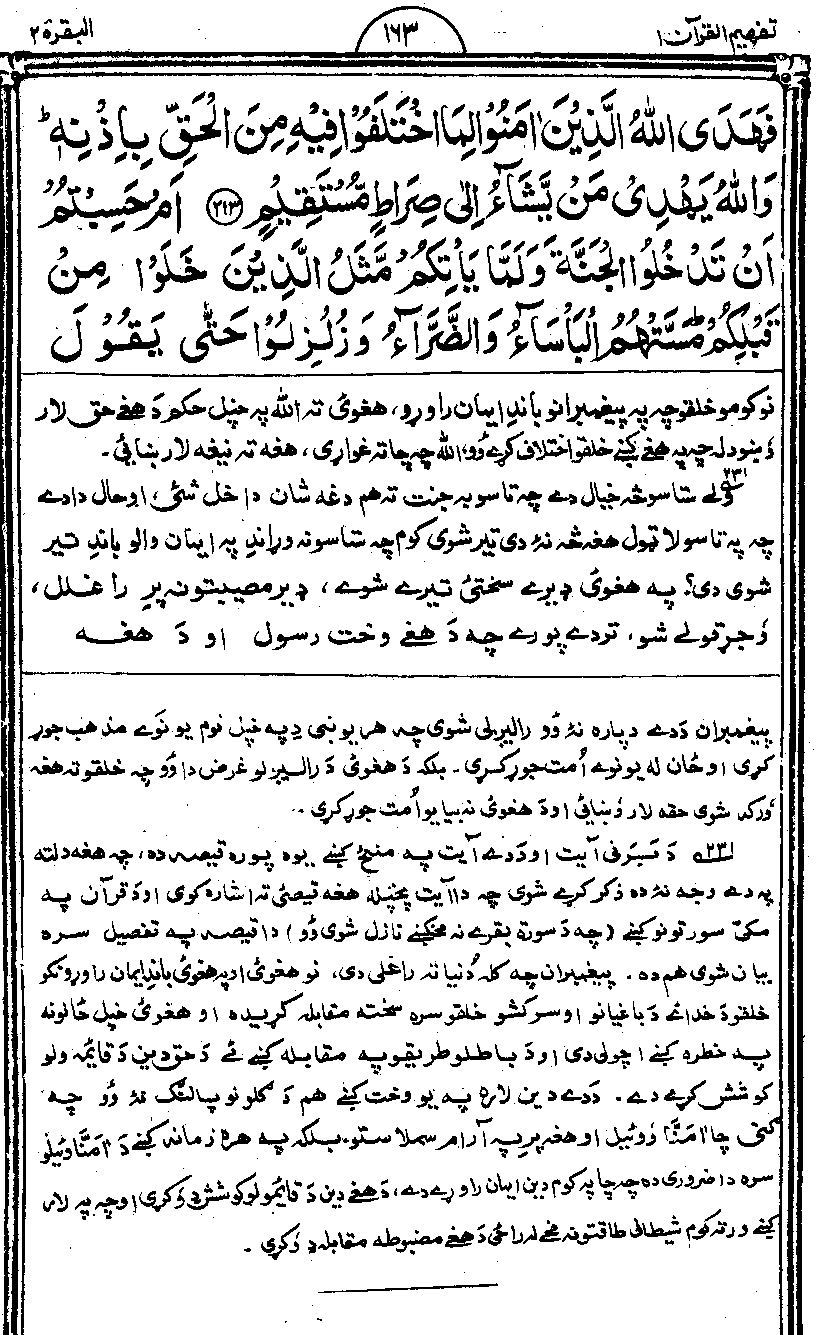 تفهیم القرآن ۱
۱۶۳
البقرة ۲
فَهَدَى اللهُ الَّذِيْنَ اٰمَنُوْا لِمَا اخْتَلَفُوْا فِيْهِ مِنَ الْحَقِّ بِاِذْنِهٖ ؕ
وَاللهُ يَهْدِىْ مَنْ يَّشَآءُ اِلٰى صِرَاطٍ مُّسْتَقِيْمٍ ﴿۲۱۳﴾ اَمْ حَسِبْتُمْ
اَنْ تَدْخُلُوا الْجَنَّةَ وَلَمَّا يَأْتِكُمْ مَّثَلُ الَّذِيْنَ خَلَوْا مِنْ
قَبْلِكُمْ ؕ مَسَّتْهُمُ الْبَأْسَآءُ وَالضَّرَّآءُ وَزُلْزِلُوْا حَتّٰى يَقُوْلَ
نو کومو خلقو چه په پیغمبرانو باندِ ایمان راوړو، هغوئ ته الله په خپل حکم دَ هغے حق لار
وَښودله چه په هغے کښے خلقو اختلاف کړے وُو، الله چه چاته غواړی، هغه ته نیغه لار ښنائی۔
۲۳۱ ولے ستاسو څه خیال دے چه تاسو به جنت ته هم دغه شان داخل شئ، او حال دا دے
چه په تاسو لا ټول هغه څه نۀ دی تیر شوی کوم چه ستاسو نه وړاندِ په ایمان والو باندِ تیر
شوی دی؟ په هغوئ ډیرے سختئ تیرے شوے، ډیر مصیبتونه پرِ راغلل،
وَجړقولے شو، تردے پورے چه دَ هغے وخت رسول او دَ هغه
پیغمبران دَدے دپاره نۀ وُو رالیږلی شوی چه هر یو نبی دِ په خپل نوم یو نوے مذهب جوړ
کړی او ځان له یو نوے اُمت جوړ کړی۔ بلکه دَ هغوئ دَ رالیږلو غرض دا وُو چه خلقو ته هغه
ورکه شوی حقه لار وَښنائی او دَ هغوئ نه بیا یو اُمت جوړ کړی۔
۲۳۱ دَ تیر فی آیت او دَدے آیت په منځ کښے یوه پوره قیصه ده، چه هغه دلته
په دے وجه نۀ ده ذکر کړے شوی چه دا آیت پخپله هغه قیصئ ته اشاره کوی او دَ قرآن په
مکیّ سورتونو کښے (چه دَ سورة بقرے نه مخکښے نازل شوی وُو) دا قیصه په تفصیل سره
بیان شوی هم ده۔ پیغمبران چه کله دُنیا ته راغلی دی، نو هغوئ او په هغوئ باندِ ایمان راوړونکو
خلقو دَ خدائے دَ باغیانو او سرکشو خلقو سره سخته مقابله کړیده او هغوئ خپل ځانونه
په خطره کښے اچولی دی او دَ باطلو طریقو په مقابله کښے ئے دَ حق دین دَ قایمه ولو
کوشش کړے دے۔ دَدے دین لاره په یو وخت کښے هم دَ ګلونو پالنګ نۀ وُو چه
ګنی چا اٰمَنَّا وَوئیل او هغه پرِ په آرام سملاستو۔ بلکه په هره زمانه کښے دَ اٰمَنَّا وئیلو
سره دا ضروری ده چه چا په کوم دین ایمان راوړے دے، دَ هغے دین دَ قایمولو کوشش دِ وَکړی او چه په لار
کښے ورته کوم شیطانی طاقتونه مخے له راځی دَ هغے مضبوطه مقابله دِ وَکړی۔